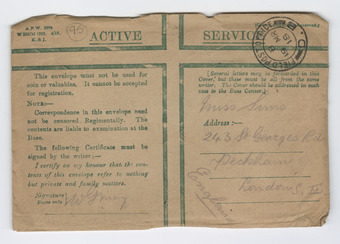 ACTIVE SERVICE
This envelope must not be used for
coin or valuables. It cannot be accepted
for registration.
NOTE:—
Correspondence in this envelope need
not be censored Regimentally. The
contents are liable to examination at the
Base.
The following Certificate must be
signed by the writer:—
I certify on my honour that the con-
tents of this envelope refer to nothing
but private and family matters.
Signature
Name only
[Several letters may be forwarded in this
Cover, but these must be all from the same
writer. The Cover should be addressed in such
case to the Base Censor.]
Miss Sims
Address :—
243 St Georges Rd
Peckham
London S
England
FIELD POST OFFICE